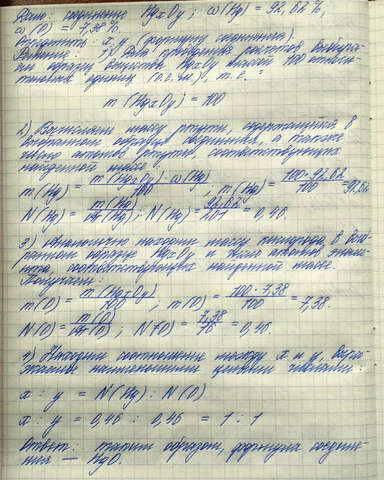 Дано: соединение HgxOy; ω(Hg) = 92,62%,
ω(O) = 7,38%.
Отыскать: x, y (формулу соединения).
Решение: 1) Для проведения расчётов выбира-
ем образец вещества HgxOy массой 100 относи-
тельных единиц (о.е.м.), т.е.
m(HgxOy) = 100
2) Вычисляем массу ртути, содержащейся в
выбранном образце соединения, а также
число атомов ртути, соответствующих
найденной массе:
m(Hg) = m(HgxOy) · ω(Hg) / 100; m(Hg) = 100·92,62 / 100 = 92,62
N(Hg) = m(Hg) / Ar(Hg); N(Hg) = 92,62 / 201 = 0,46.
3) Аналогично находим массу кислорода в выб-
ранном образце HgxOy и число атомов элеме-
нта, соответствующих найденной массе.
Получаем:
m(O) = m(HgxOy) / 100; m(O) = 100·7,38 / 100 = 7,38.
N(O) = m(O) / Ar(O); N(O) = 7,38 / 16 = 0,46.
4) Находим соотношение между x и y, выра-
жаемая наименьшими целыми числами:
x : y = N(Hg) : N(O)
x : y = 0,46 : 0,46 = 1 : 1
Ответ: таким образом, формула соедине-
ния — HgO.